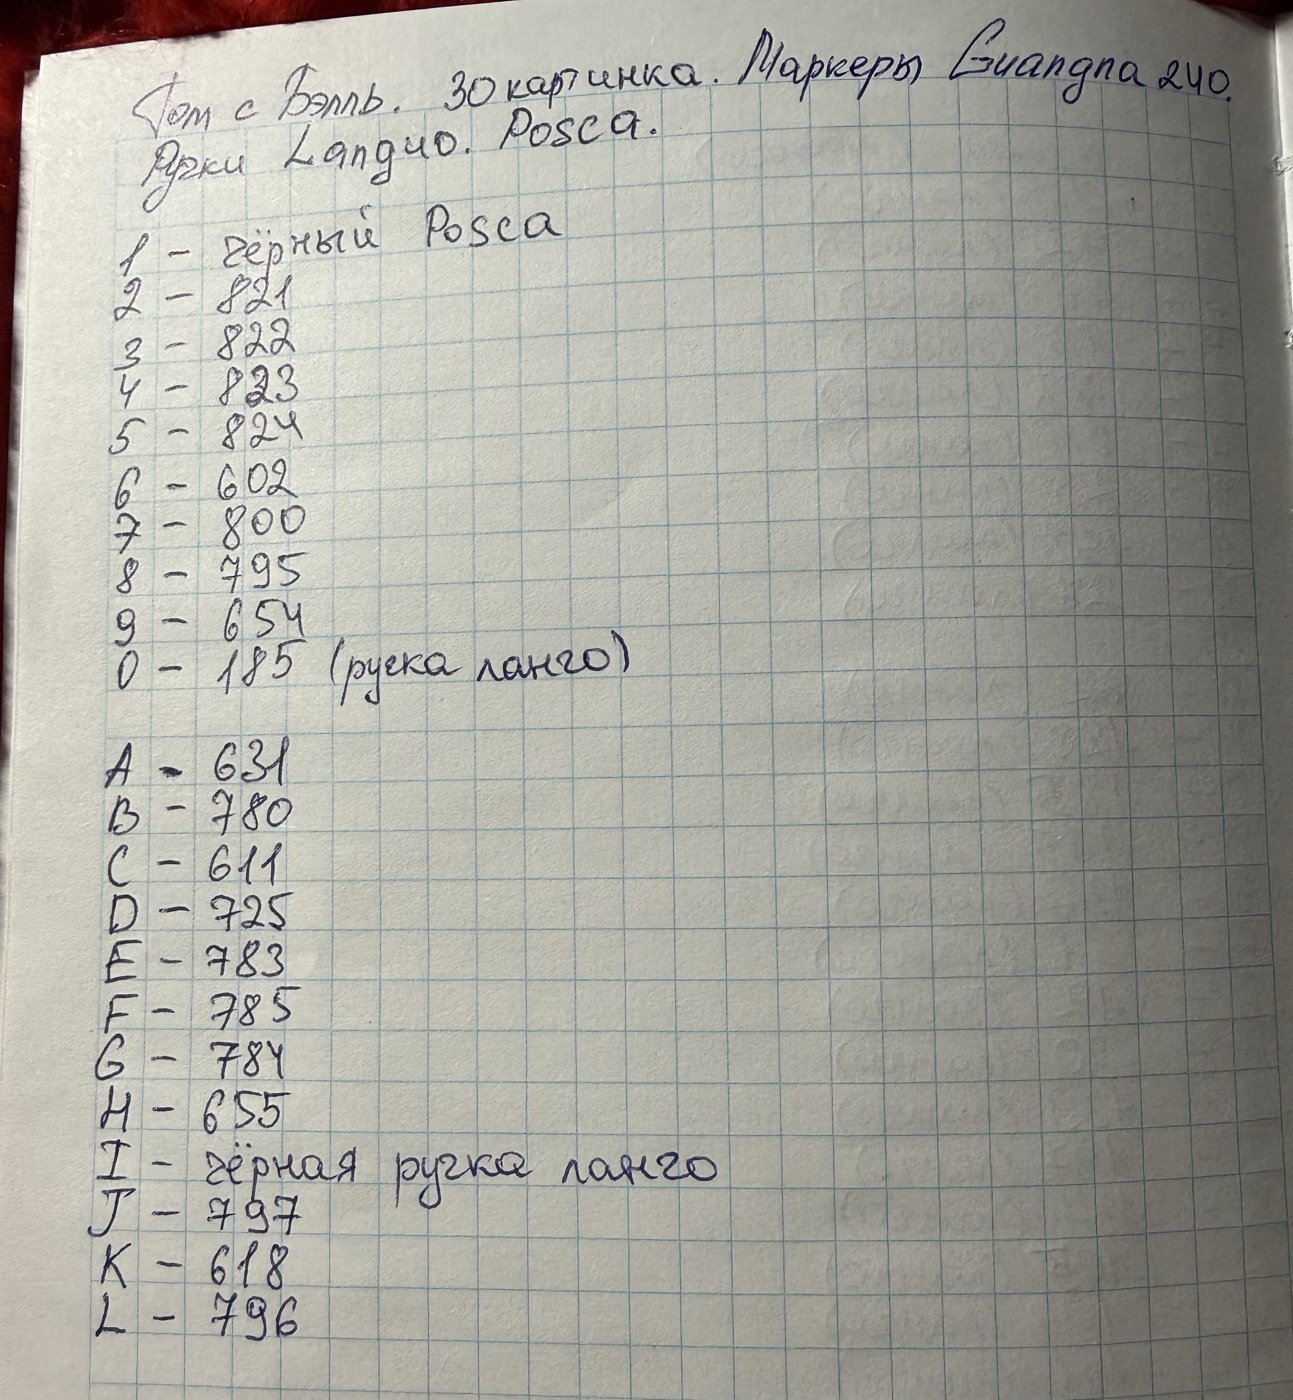 Том с Бэлль. 30 картинка. Маркеры Guangna 240.
Ручки Languo. Posca.
1 - чёрный Posca
2 - 821
3 - 822
4 - 823
5 - 824
6 - 602
7 - 800
8 - 795
9 - 654
0 - 185 (ручка ланго)
A - 631
B - 780
C - 611
D - 725
E - 783
F - 785
G - 784
H - 655
I - чёрная ручка ланго
J - 797
K - 618
L - 796